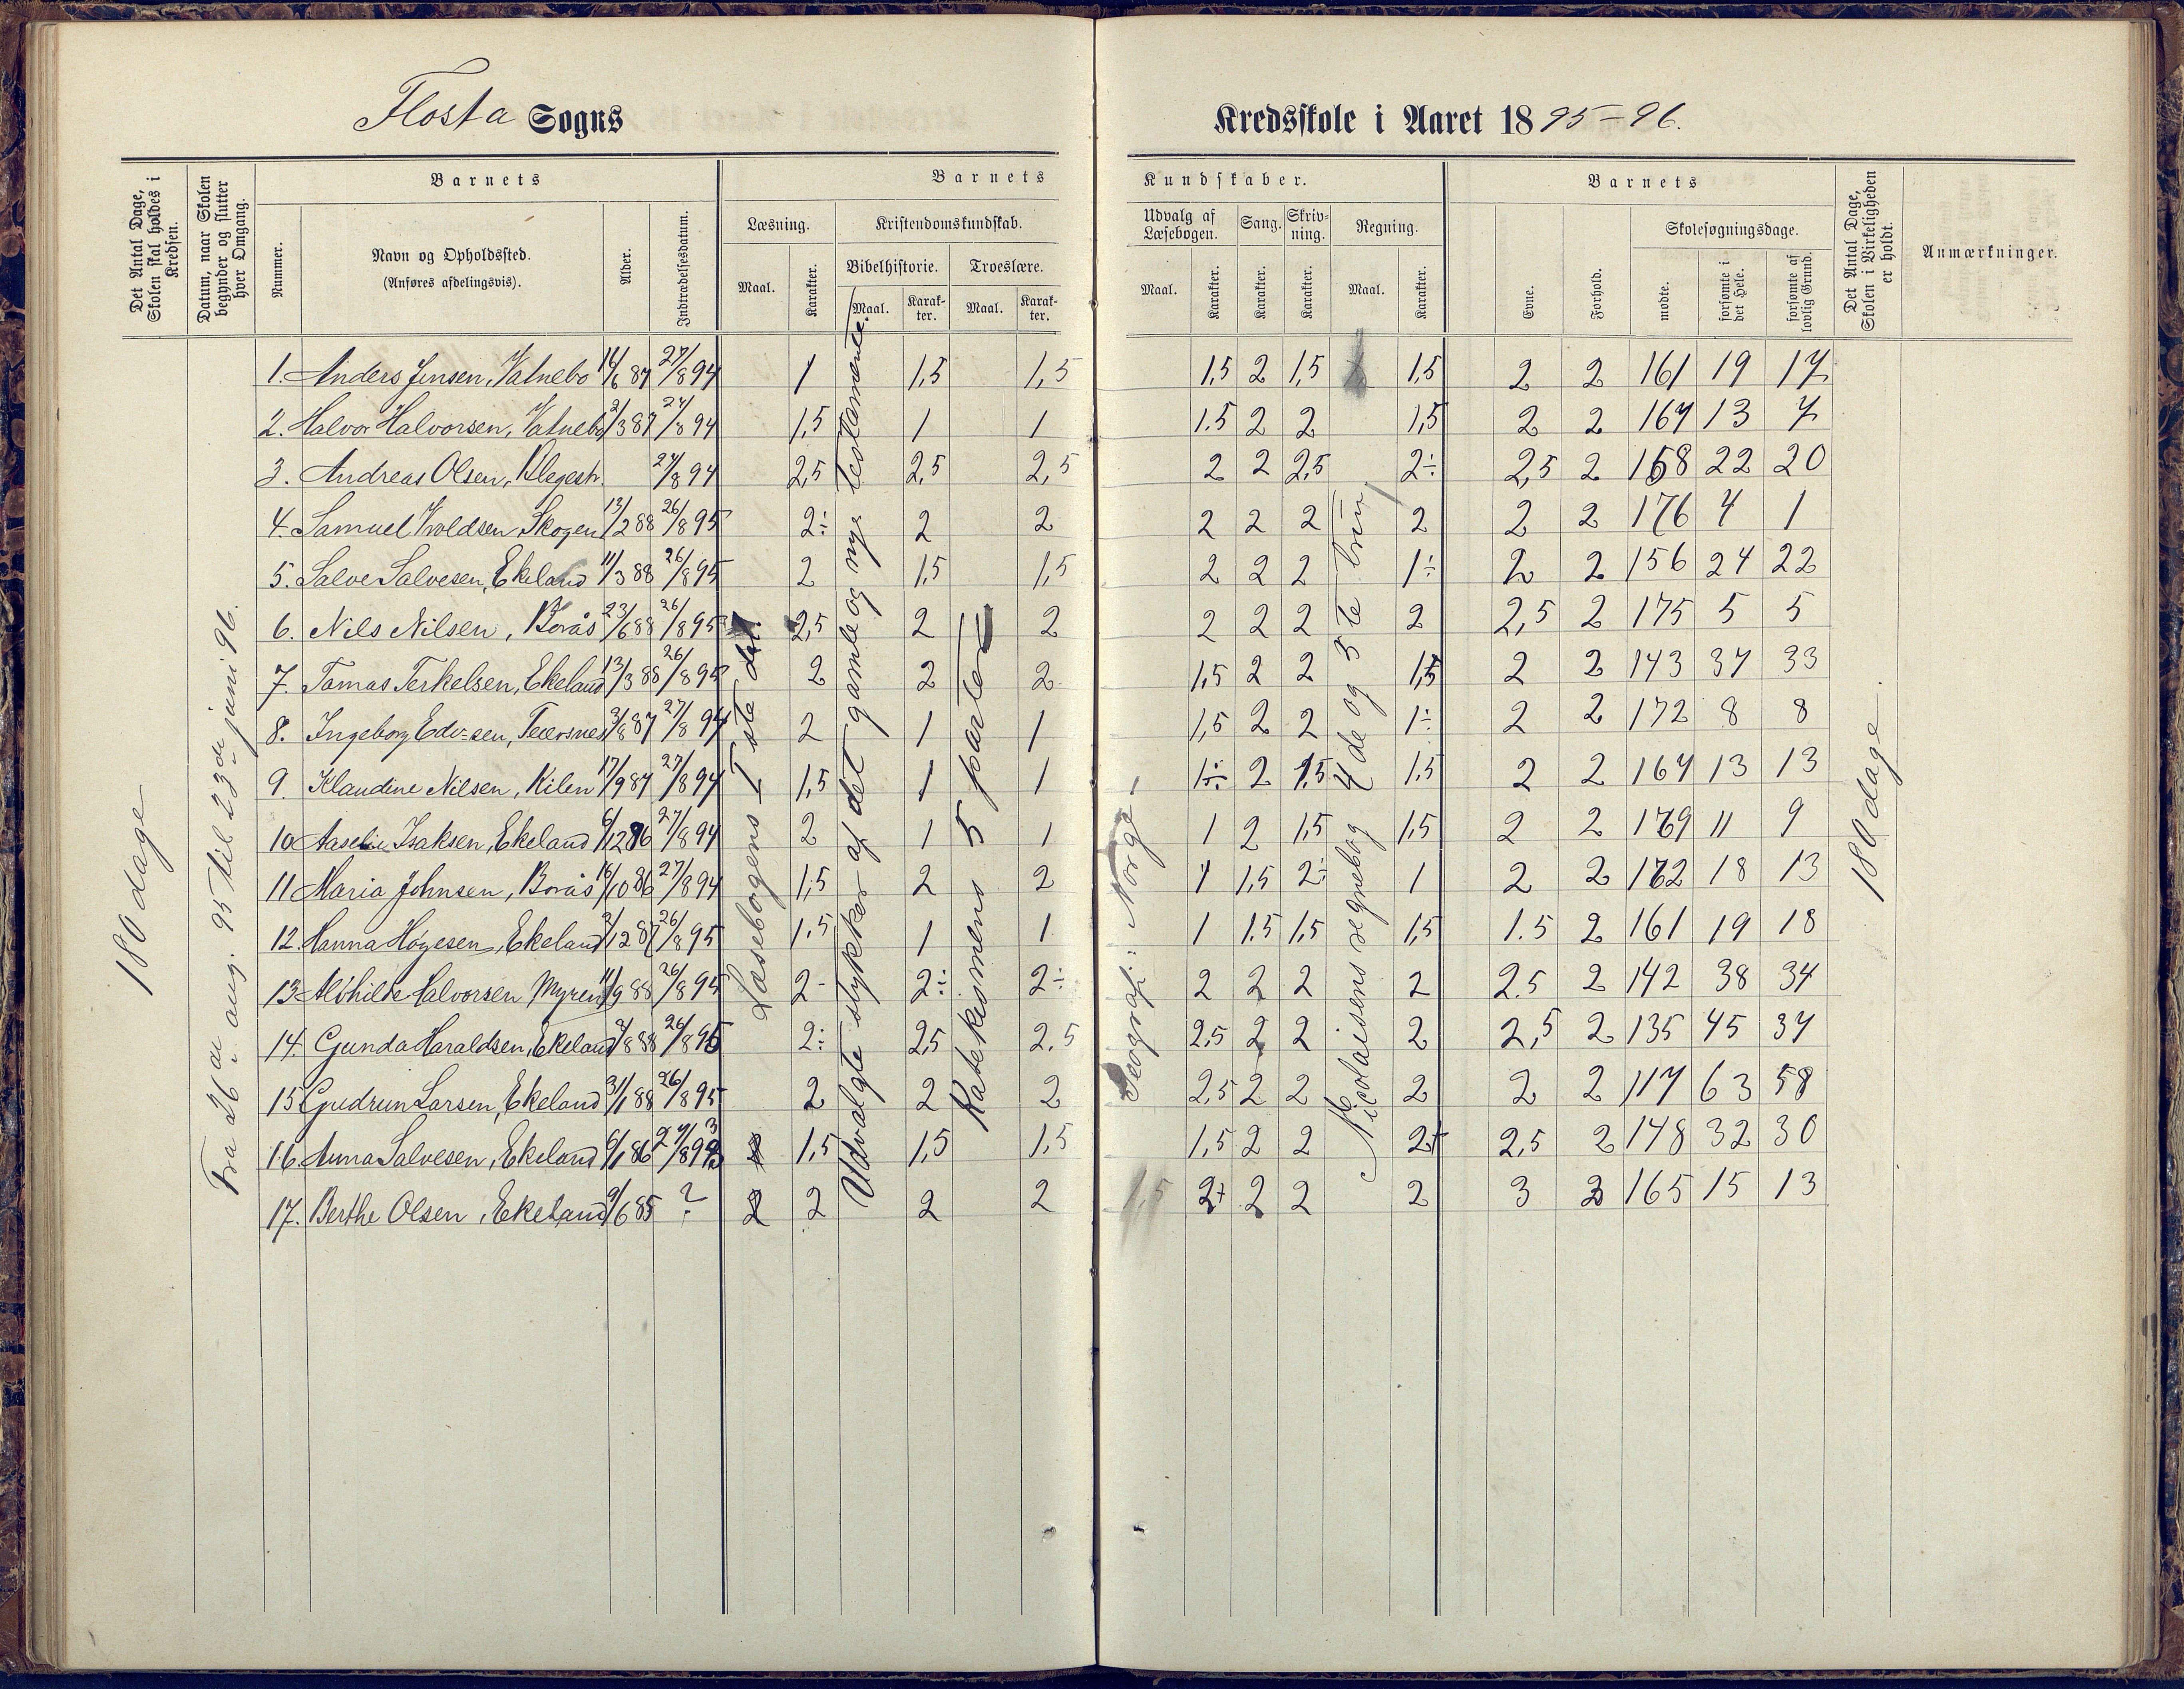 Flosta Sogns
Kredsskole i Aaret 1895-96.
Det Antal Dage, Skolen skal holdes i Kredsen.
Datum, naar Skolen begynder og slutter hver Omgang.
Barnets
Nummer.
Navn og Opholdssted.
(Anføres afdelingsvis).
Alder.
Indtrædelsesdatum.
Barnets
Læsning.
Maal.
Karakter.
Kristendomskundskab.
Bibelhistorie.
Maal.
Karakter.
Troeslære.
Maal.
Karakter.
Kundskaber.
Udvalg af Læsebogen.
Maal.
Karakter.
Sang.
Karakter.
Skrivning.
Karakter.
Regning.
Maal.
Karakter.
Barnets
Evne.
Forhold.
Skolesøgningsdage.
mødte.
forsømte i det Hele.
forsømte af lovlig Grund.
Det Antal Dage, Skolen i Virkeligheden er holdt.
Anmærkninger.
180 dage
Fra 26de aug. 95 til 23de juni 96.
Læsebogens I ste del.
Udvalgte stykker af det gamle og nye testamente.
Katekismens 5 parter
Geografi: Norge
Nicolaisens regnebog 4de og 5te trin
180 dage
1. Anders Jensen, Vatnebo 14/6 87 27/8 94 1 1,5 1,5 1,5 2 1,5 1,5 2 2 161 19 17
2. Halvor Halvorsen, Vatnebo 2/3 87 27/8 94 1,5 1 1 1.5 2 2 1,5 2 2 167 13 7
3. Andreas Olsen, 27/8 94 2,5 2,5 2,5 2 2 2,5 2÷ 2,5 2 158 22 20
4. Samuel Skogen 13/2 88 26/8 95 2÷ 2 2 2 2 2 2 2 2 176 4 1
5. Salve Salvesen, Ekeland 11/3 88 26/8 95 2 1,5 1,5 2 2 2 1÷ 2 2 156 24 22
6. Nils Nilsen, Borås 23/6 88 26/8 95 2,5 2 2 2 2 2 2 2,5 2 175 5 5
7. Tomas Terkelsen, Ekeland 13/3 88 26/8 95 2 2 2 1,5 2 2 1,5 2 2 143 37 33
8. Ingeborg Edv=sen, 3/8 87 27/8 94 2 1 1 1,5 2 2 1÷ 2 2 172 8 8
9. Klaudine Nilsen, Kilen 17/9 87 27/8 94 1,5 1 1 1÷ 2 1,5 1,5 2 2 167 13 13
10 Aaselie Isaksen, Ekeland 6/12 86 27/8 94 2 1 1 1 2 1,5 1,5 2 2 169 11 9
11 Maria Johnsen, Borås 16/10 86 27/8 94 1,5 2 2 1 1,5 2÷ 1 2 2 162 18 13
12. Hanna Høyesen, Ekeland 2/12 87 26/8 95 1,5 1 1 1 1.5 1,5 1,5 1.5 2 161 19 18
13 Alvhilde Halvorsen Myren 11/9 88 26/8 95 2- 2÷ 2÷ 2 2 2 2 2.5 2 142 38 34
14. Gunda Haraldsen, Ekeland 2/8 88 26/8 95 2÷ 2,5 2.5 2,5 2 2 2 2,5 2 135 45 37
15 Gudrun Larsen, Ekeland 31/1 88 26/8 95 2 2 2 2,5 2 2 2 2 2 117 63 58
16. Anna Salvesen, Ekeland 6/1 86 1,5 1,5 1,5 1,5 2 2 2+ 2,5 2 148 32 30
17. Berthe Olsen, Ekeland 9/6 85 ? 2 2 2 2 2+ 2 2 2 3 2 165 15 13